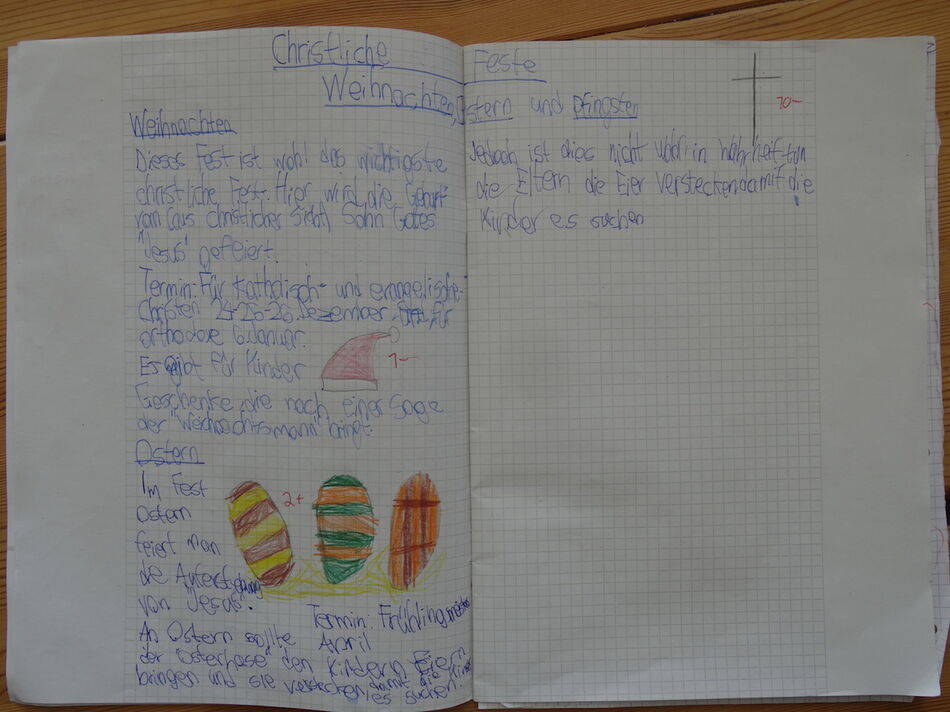 Christliche Feste
Weihnachten, Ostern und Pfingsten
Weihnachten
Dieses Fest ist wohl das wichtigste
christliche Fest. Hier wird die Geburt
vom (aus christlicher Sicht) Sohn Gotes
"Jesus" gefeiert.
Termin: Für katholisch- und evangelische-
Christen 24-25-26. Dezember für
orthodoxe 6. Januar.
Es gibt für Kinder
1-
Geschenke, die nach einer Sage
der "Weihnachtsmann" bringt.
Ostern
Im Fest
Ostern
feiert man
die Auferstehung
von "Jesus".
2+
Termin: Frühling meistens
April
An Ostern sollte
der "Osterhase" den Kindern Eiern
bringen und sie verstecken damit die Kinder
es suchen.
10-
Jedoch ist dies nicht und in Wahrheit tun
die Eltern die Eier verstecken damit die
Kinder es suchen